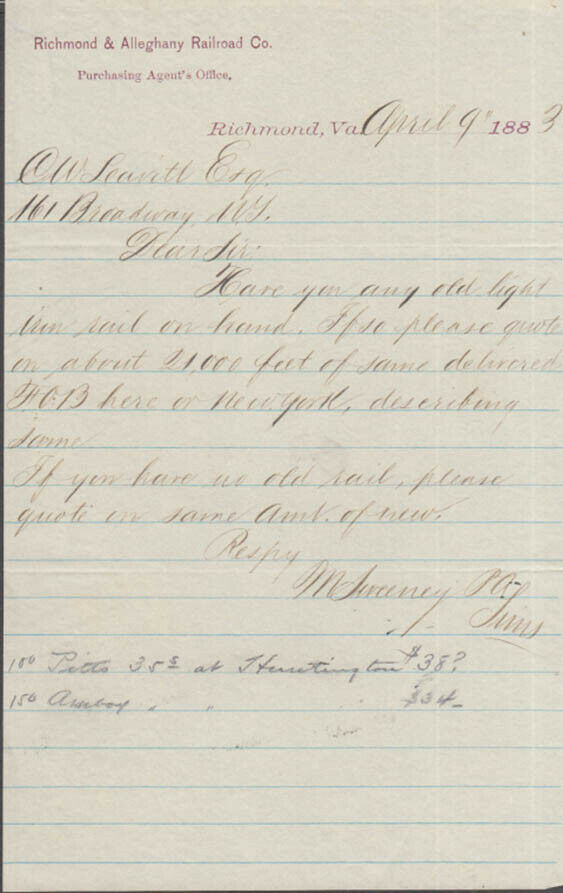 Richmond & Alleghany Railroad Co.
Purchasing Agent's Office.
Richmond, Va. April 9" 1883
C W Leavitt Esq.
161 Broadway N.Y.
Dear Sir:
Have you any old light
iron rail on hand. If so please quote
on about 21,000 feet of same delivered
F.O.B here or New York, describing
same
If you have no old rail, please
quote on same Amt. of new.
Respy
M Sweeney P.A.
100 Pitts 35s at Huntington $38?
150 Amboy " " $34-